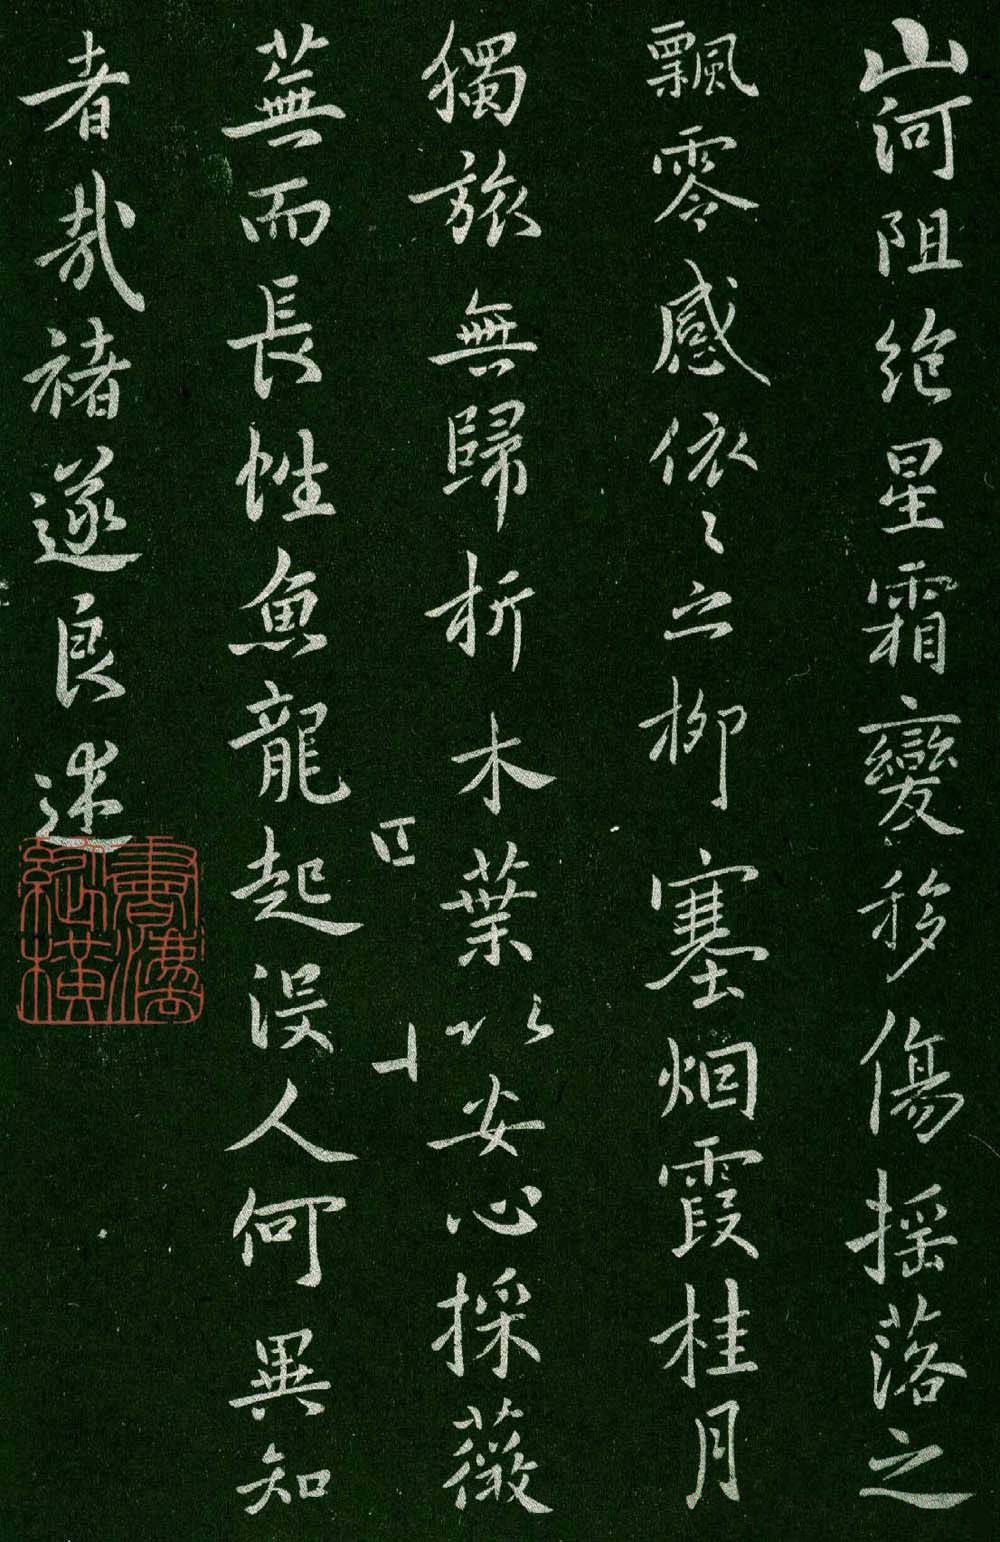 山河阻絶星霜變移傷揺落之
飄零感依〻之柳塞烟霞桂月
獨旅無歸折木葉以安心採薇
蕪而長性魚龍起没人何異知
者哉褚遂良述
書灋
縱橫